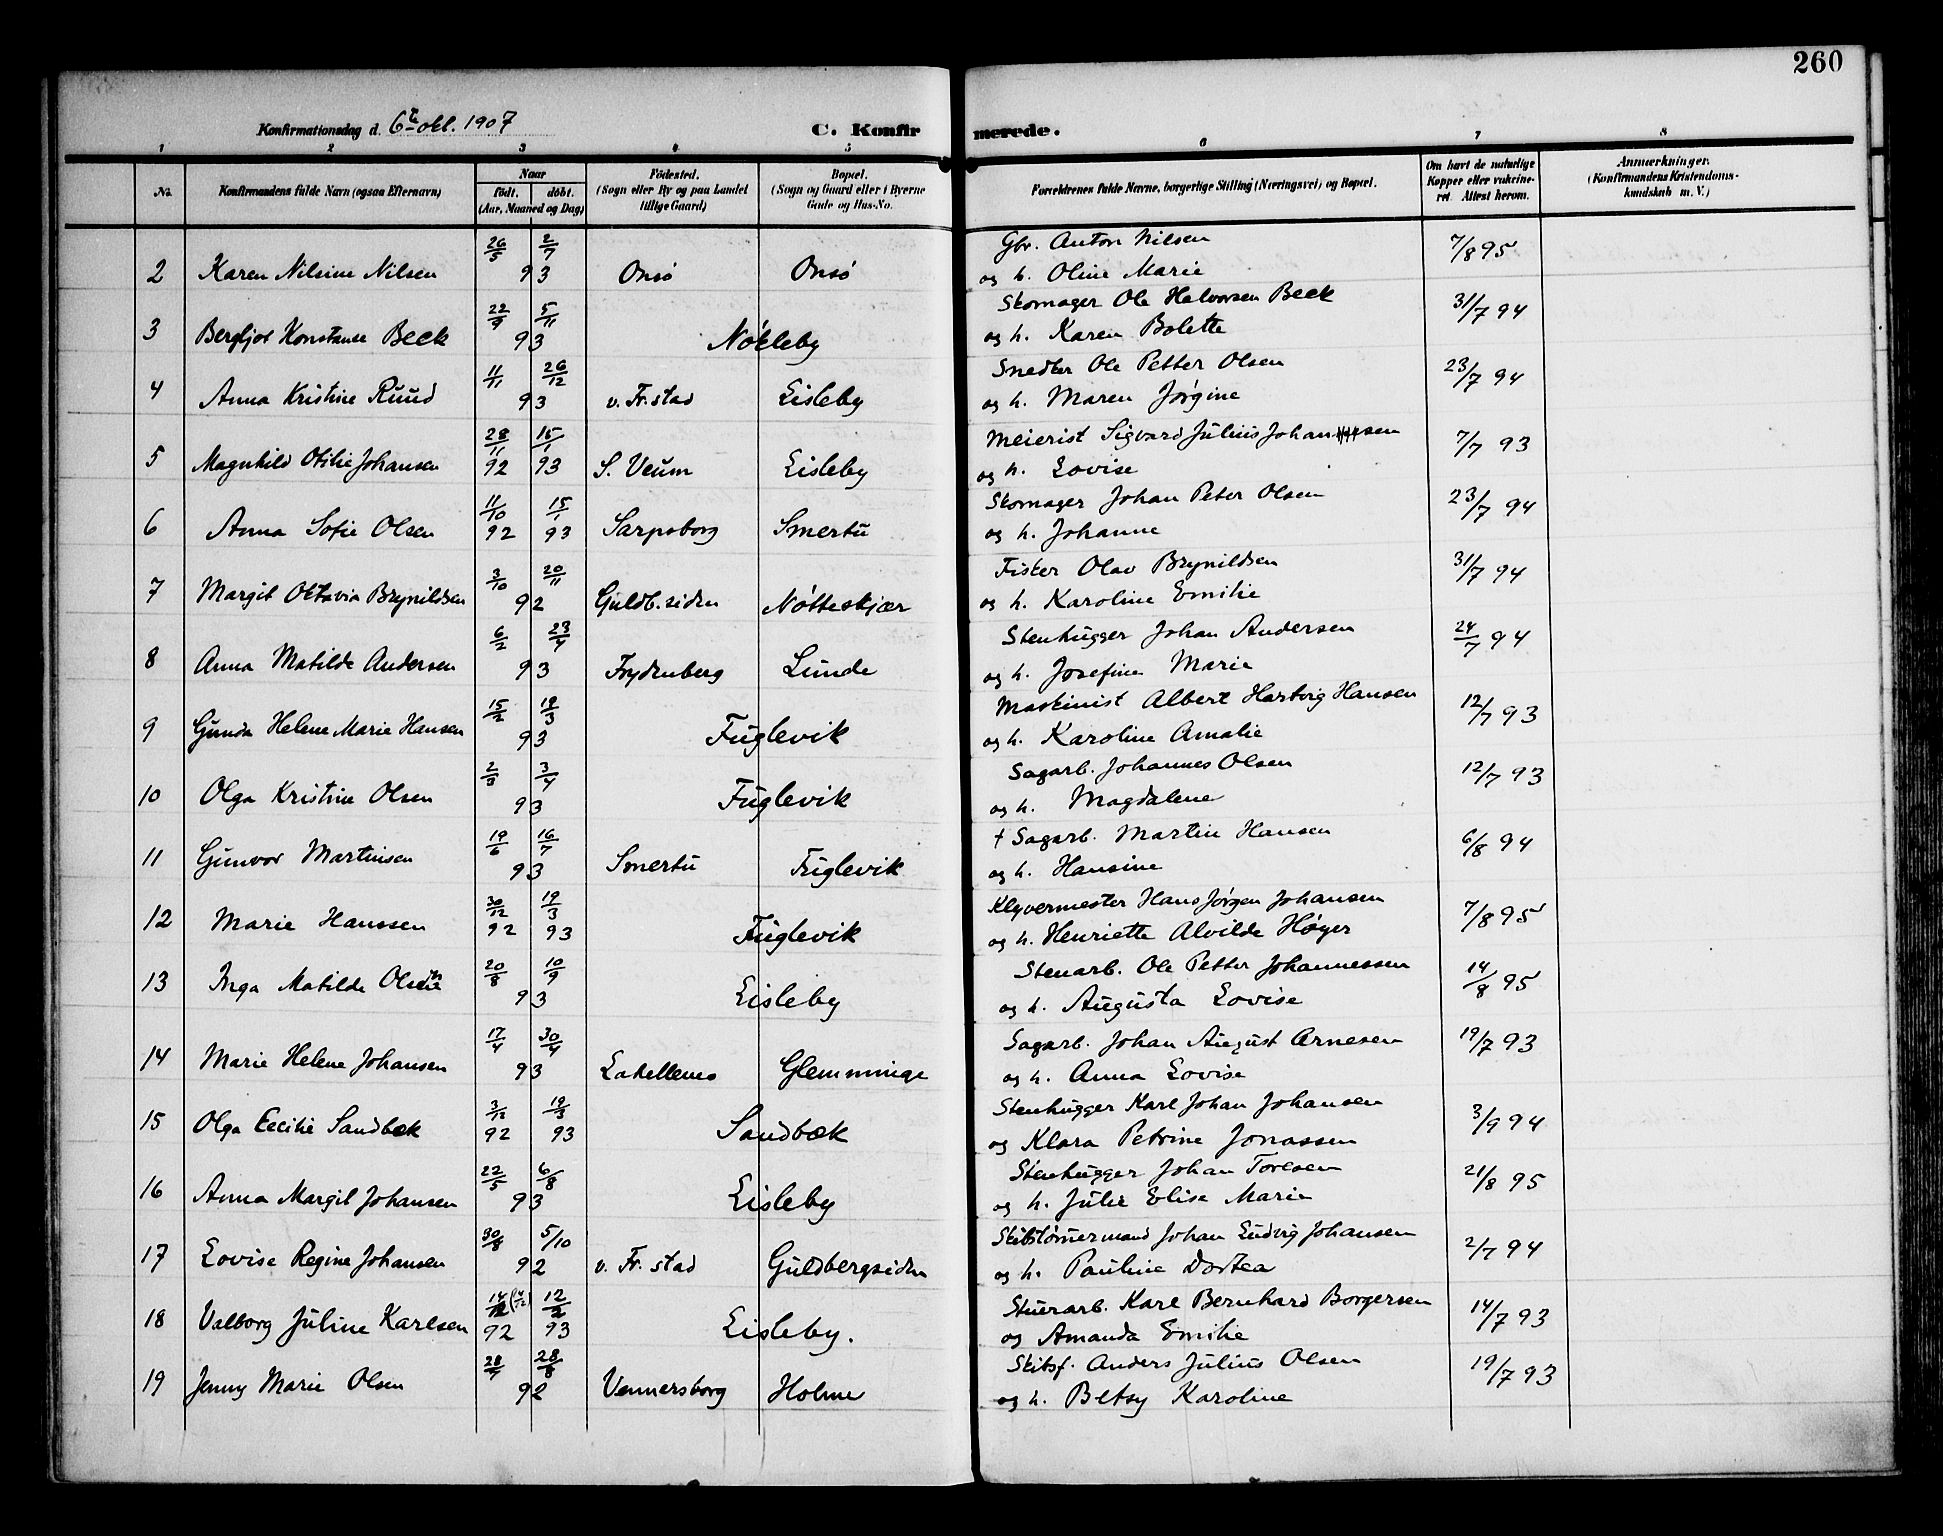 260
Konfirmationsdag d. 6te okt. 1907
C. Konfirmerede.
1 2 3 4 5 6 7 8
No. Konfirmandens fulde Navn (ogsaa Efternavn) Naar født. døbt. (Aar, Maaned og Dag) Fødested. (Sogn eller By og paa Landet tillige Gaard) Bopæl. (Sogn og Gaard eller i Byerne Gade og Hus-No. Forældrenes fulde Navne, borgerlige Stilling (Næringsvei) og Bopæl. Om havt de naturlige Kopper eller vakcineret. Attest herom. Anmærkninger. (Konfirmandens Kristendomskundskab m. V.)
26/5 2/7 Gbr. Anton Nilsen 7/8 95
2 Karen Nilsine Nilsen 93 Onsö Onsö og h. Oline Marie
22/9 5/11 Skomager Ole Halvorsen Beck 31/7 94
3 Bergljot Konstanse Beck 93 Nökleby og h. Karen Bolette
11/11 26/12 Snedker Ole Petter Olsen 23/7 94
4 Anna Kristine Ruud 93 v. Fr.stad Lisleby og h. Maren Jørgine
28/11 15/1 Meierist Sigvard Julius Johansen 7/7 93
5 Magnhild Otilie Johansen 92 93 S. Veum Lisleby og h. Lovise
11/10 15/1 Skomager Johan Peter Olsen 23/7 94
6 Anna Sofie Olsen 92 93 Sarpsborg Smertu og h. Johanne
3/10 20/11 Fisker Olav Brynildsen 31/7 94
7 Margit Oktavia Brynildsen 92 Guldb.siden Nötteskjær og h. Karoline Emilie
6/2 23/4 Stenhugger Johan Andersen 24/7 94
8 Anna Matilde Andersen 93 Frydenberg Lunde og h. Josefine Marie
15/2 19/3 Maskinist Albert Hartvig Hansen 12/7 93
9 Gunda Helene Marie Hansen 93 Fuglevik og h. Karoline Amalie
2/3 3/4 Sagarb. Johannes Olsen 12/7 93
10 Olga Kristine Olsen 93 Fuglevik og h. Magdalene
19/6 16/7 † Sagarb. Martin Hansen 6/8 94
11 Gunvor Martinsen 93 Smertu Fuglevik og h. Hansine
30/12 19/3 Klyvermester Hans Jørgen Johansen 7/8 95
12 Marie Hanssen 92 93 Fuglevik og h. Henriette Alvilde Høyer
20/8 10/9 Stenarb. Ole Petter Johannessen 14/8 95
13 Inga Matilde Olsen 93 Lisleby og h. Augusta Lovise
17/4 30/4 Sagarb. Johan August Arnesen 19/7 93
14 Marie Helene Johansen 93 Lahellenes Glemminge og h. Anna Lovise
3/12 19/3 Stenhugger Karl Johan Johansen 3/9 94
15 Olga Cecilie Sandbæk 92 93 Sandbæk og Klara Petrine Jonassen
22/5 6/8 Stenhugger Johan Toresen 21/8 95
16 Anna Margit Johansen 93 Lisleby og h. Julie Elise Marie
30/8 5/10 Skibstømermand Johan Ludvig Johansen 2/7 94
17 Lovise Regine Johansen 92 v. Fr. stad Guldbergsiden og h. Pauline Dortea
12/2 Stuerarb. Karl Bernhard Borgersen 14/7 93
18 Valborg Juline Karlsen 92 93 Lisleby. og Amanda Emilie
28/8 Skibsf. Anders Julius Olsen 19/7 93
19 Jenny Marie Olsen 92 Vennersborg Holme og h. Betsy Karoline